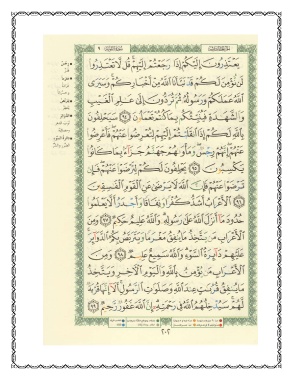 يَعْتَذِرُونَ إِلَيْكُمْ إِذَا رَجَعْتُمْ إِلَيْهِمْ قُل لَّا تَعْتَذِرُوا۟
لَن نُّؤْمِنَ لَكُمْ قَدْ نَبَّأَنَا ٱللَّهُ مِنْ أَخْبَارِكُمْ وَسَيَرَى
ٱللَّهُ عَمَلَكُمْ وَرَسُولُهُۥ ثُمَّ تُرَدُّونَ إِلَىٰ عَٰلِمِ ٱلْغَيْبِ
وَٱلشَّهَٰدَةِ فَيُنَبِّئُكُم بِمَا كُنتُمْ تَعْمَلُونَ ٩٤ سَيَحْلِفُونَ
بِٱللَّهِ لَكُمْ إِذَا ٱنقَلَبْتُمْ إِلَيْهِمْ لِتُعْرِضُوا۟ عَنْهُمْ فَأَعْرِضُوا۟
عَنْهُمْ إِنَّهُمْ رِجْسٌ وَمَأْوَىٰهُمْ جَهَنَّمُ جَزَآءًۢ بِمَا كَانُوا۟
يَكْسِبُونَ ٩٥ يَحْلِفُونَ لَكُمْ لِتَرْضَوْا۟ عَنْهُمْ فَإِن
تَرْضَوْا۟ عَنْهُمْ فَإِنَّ ٱللَّهَ لَا يَرْضَىٰ عَنِ ٱلْقَوْمِ ٱلْفَٰسِقِينَ
٩٦ ٱلْأَعْرَابُ أَشَدُّ كُفْرًا وَنِفَاقًا وَأَجْدَرُ أَلَّا يَعْلَمُوا۟
حُدُودَ مَآ أَنزَلَ ٱللَّهُ عَلَىٰ رَسُولِهِۦ وَٱللَّهُ عَلِيمٌ حَكِيمٌ ٩٧ وَمِنَ
ٱلْأَعْرَابِ مَن يَتَّخِذُ مَا يُنفِقُ مَغْرَمًا وَيَتَرَبَّصُ بِكُمُ ٱلدَّوَآئِرَ
عَلَيْهِمْ دَآئِرَةُ ٱلسَّوْءِ وَٱللَّهُ سَمِيعٌ عَلِيمٌ ٩٨ وَمِنَ
ٱلْأَعْرَابِ مَن يُؤْمِنُ بِٱللَّهِ وَٱلْيَوْمِ ٱلْءَاخِرِ وَيَتَّخِذُ
مَا يُنفِقُ قُرُبَٰتٍ عِندَ ٱللَّهِ وَصَلَوَٰتِ ٱلرَّسُولِ أَلَآ إِنَّهَا قُرْبَةٌ
لَّهُمْ سَيُدْخِلُهُمُ ٱللَّهُ فِى رَحْمَتِهِۦٓ إِنَّ ٱللَّهَ غَفُورٌ رَّحِيمٌ ٩٩
٢٠٢